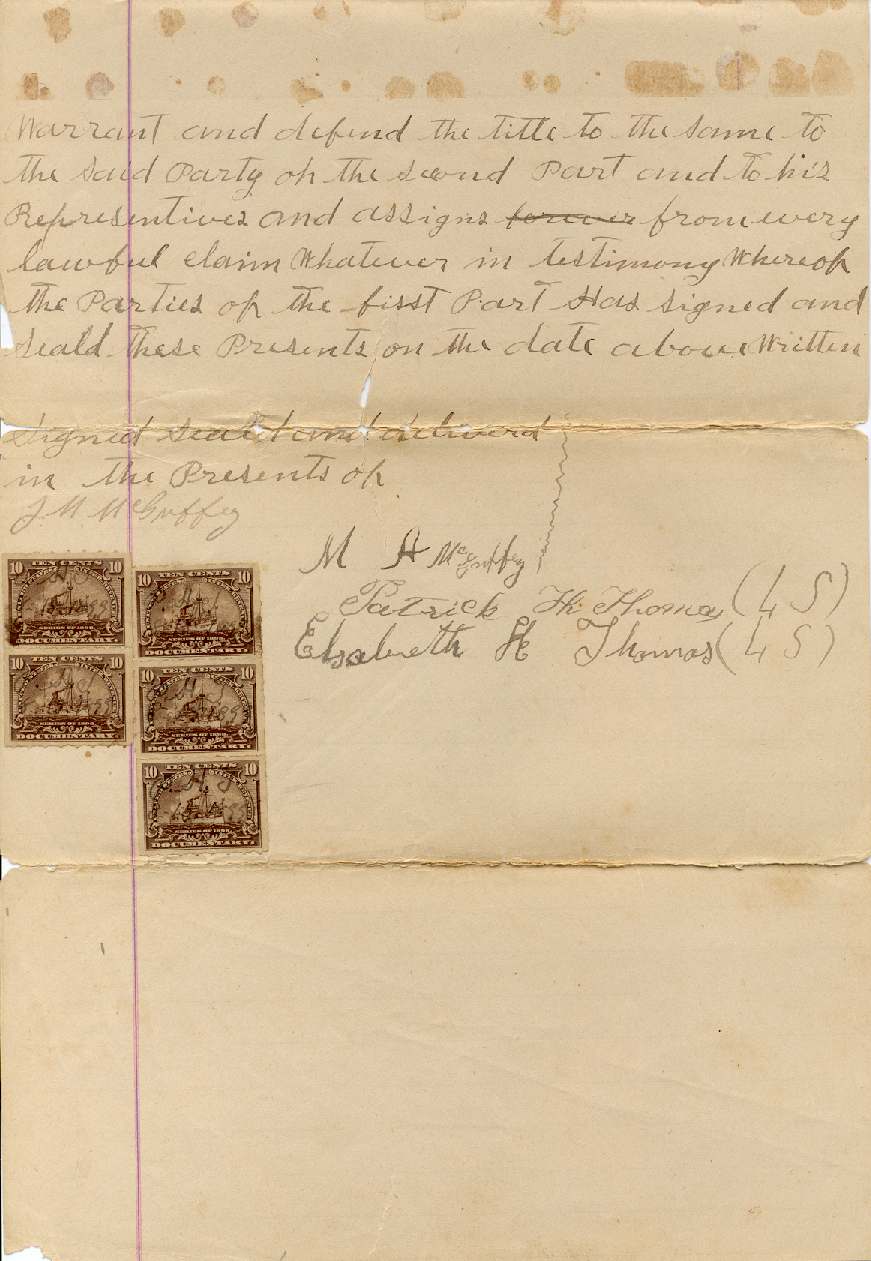 Warrant and defend the title to the same to
the said Party of the second Part and to his
Representives and assigns forever from every
lawful claim Whatever in testimony Whereof
the Parties of the first Part Has signed and
seald these Presents on the date above Written
Signed seald and deliverd
in the Presents of
J. M McGuffey
M H McGuffey
Patrick H. Thomas (L S)
Elsabeth H Thomas (L S)
10 TEN CENTS 10
DOCUMENTARY
10 TEN CENTS 10
DOCUMENTARY
10 TEN CENTS 10
DOCUMENTARY
10 TEN CENTS 10
DOCUMENTARY
10 TEN CENTS 10
DOCUMENTARY